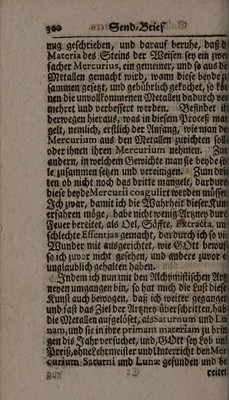 300 Send-Brief
nug geschrieben, und darauf beruhe, daß d
Materia des Steins der Weisen sey ein zwei
facher Mercurius, ein gemeiner, und so aus de
Metallen gemacht wird, wann diese beyde zu
sammen gesetzt, und gebührlich gekochet, so kön
nen die unvollkommenen Metallen dadurch ver
mehret und verbessert werden. Befindet si
derwegen hieraus, was in diesem Proceß man
gelt, nemlich, erstlich der Anfang, wie man de
Mercurium aus den Metallen zurichten soll
oder ihnen ihren Mercurium nehmen. Zum
andern, in welchem Gewichte man sie beyde so
le zusammen setzen und vereinigen. Zum drit
ten ob nicht noch das dritte mangelt, dardurch
diese beyde Mercurii coagulirt werden müssen
Ich zwar, damit ich die Wahrheit dieser Kunst
erfahren möge, habe nicht wenig Artzney durch
Feuer bereitet, als Oel, Säffte, Extracta, un
schlechte Essentias gemacht, dardurch ich so vi
Wunder mit ausgerichtet, wie GOtt bewust
so ich zuvor nicht gesehen, und andere zuvor e
unglaublich gehalten haben.
Indem ich nun mit den Alchymistischen Artz
neyen umgangen bin, so hat mich die Lust dieser
Kunst auch bewogen, daß ich weiter gegangen
und fast das Ziel der Artzney überschritten, hab
die Metallen aufgelöset, als Saturnum und Lu
nam, und sie in ihre primam materiam zu brin
gen dis Jahr versuchet, und, GOtt sey Lob und
Preiß, ohne Lehrmeister und Unterricht den Mer
curium Saturni und Lunæ gefunden und be
reitet